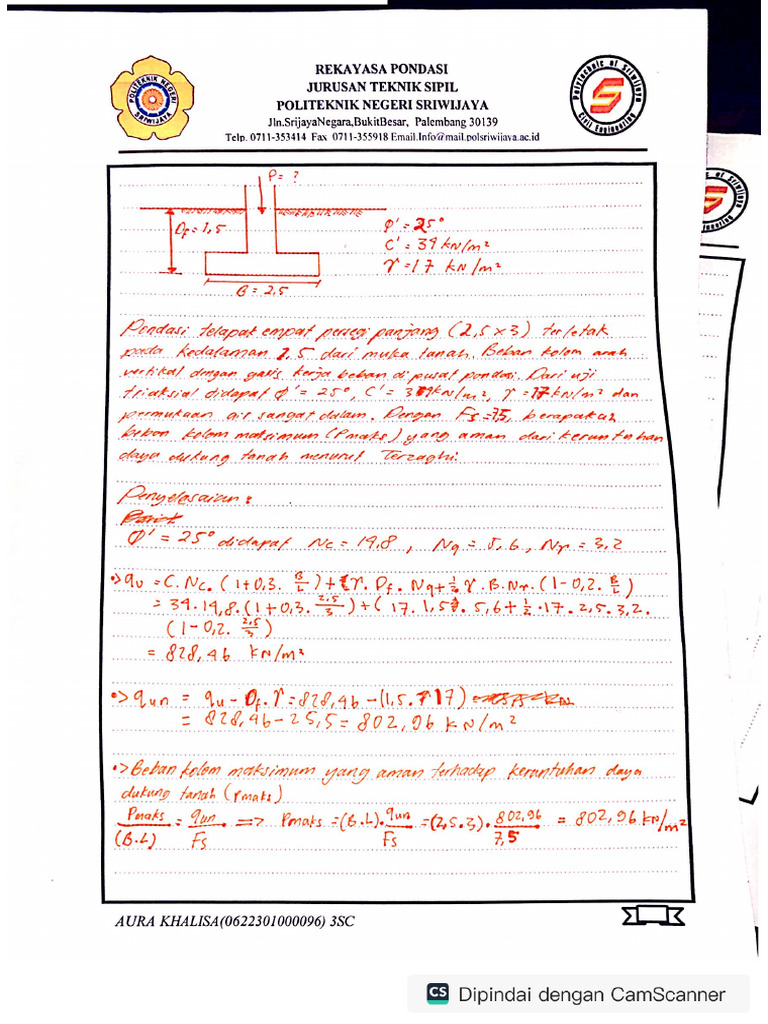 REKAYASA PONDASI
JURUSAN TEKNIK SIPIL
POLITEKNIK NEGERI SRIWIJAYA
Jln.SrijayaNegara,BukitBesar, Palembang 30139
Telp. 0711-353414 Fax 0711-355918 Email.Info@mail.polsriwijaya.ac.id
POLITEKNIK NEGERI
SRIWIJAYA
Polytechnic of Sriwijaya
Civil Engineering
P = ?
Df = 1,5
B = 2,5
Φ' = 25°
C' = 34 kN/m²
γ = 17 kN/m²
Pondasi telapak empat persegi panjang (2,5 x 3) terletak
pada kedalaman 1.5 dari muka tanah. Beban kolom arah
vertikal dengan garis kerja beban di pusat pondasi. Dari uji
triaksial didapat Φ' = 25°, C' = 34kN/m², γ = 17kN/m² dan
permukaan air sangat dalam. Dengan Fs = 7,5, berapakah
beban kolom maksimum (Pmaks) yang aman dari keruntuhan
daya dukung tanah menurut Terzaghi.
Penyelesaian :
Φ' = 25° didapat Nc = 14,8 , Nq = 5,6 , Nγ = 3,2
•> qu = C. Nc. (1+0,3. B/L) + (γ. Df. Nq + ½ γ. B. Nγ. (1-0,2. B/L)
= 34. 14,8. (1+0,3. 2,5/3) + ( 17. 1,5). 5,6 + ½ .17. 2,5. 3,2.
(1-0,2. 2,5/3)
= 828,46 kN/m²
•> qun = qu - Df. γ = 828,46 - (1,5. 17)
= 828,46 - 25,5 = 802,96 kN/m²
•> Beban kolom maksimum yang aman terhadap keruntuhan daya
dukung tanah (Pmaks)
Pmaks/(B.L) = qun/Fs => Pmaks = (B.L). qun/Fs = (2,5.3). 802,96/7,5 = 802,96 kN/m²
AURA KHALISA(0622301000096) 3SC
CS Dipindai dengan CamScanner